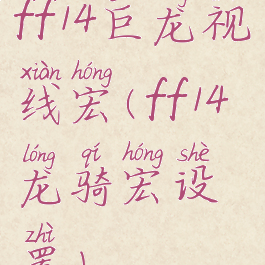 ff14巨龙视
xiàn hóng
线宏(ff14
lóng qí hóng shè
龙骑宏设
zhì
置)